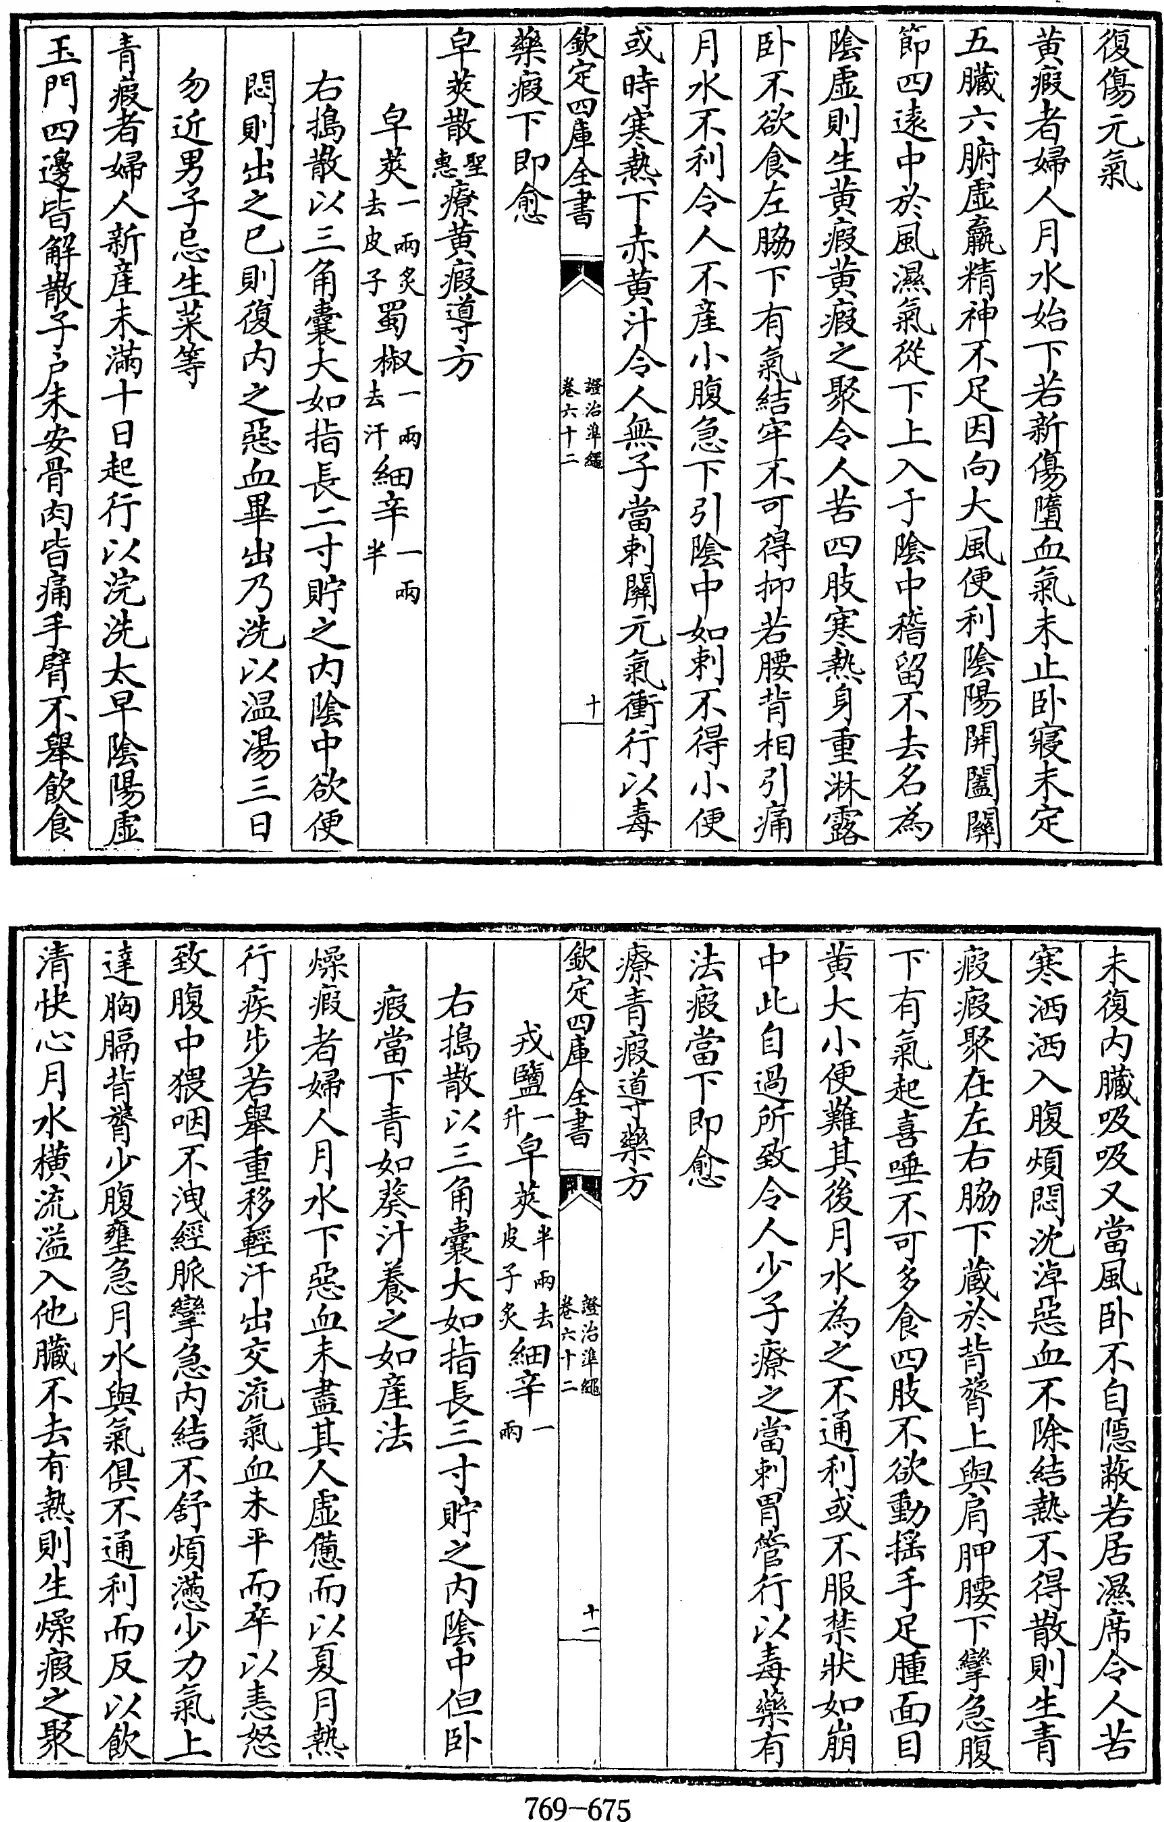 復傷元氣
黄瘕者婦人月水始下若新傷墮血氣未止卧寢未定
五臟六腑虛羸精神不足因向大風便利陰陽開闔關
節四逺中於風濕氣從下上入于陰中稽留不去名為
陰虛則生黄瘕黄瘕之聚令人苦四肢寒熱身重淋露
卧不欲食左脇下有氣結牢不可得抑若腰背相引痛
月水不利令人不産小腹急下引陰中如刺不得小便
或時寒熱下赤黄汁令人無子當刺關元氣衝行以毒
欽定四庫全書 證治準繩 卷六十二 十
藥瘕下即愈
皁莢散聖惠療黄瘕導方
皁莢一兩炙去皮子蜀椒一兩去汗細辛一兩半
右搗散以三角囊大如指長二寸貯之内陰中欲便
悶則出之已則復内之惡血畢出乃洗以温湯三日
勿近男子忌生菜等
青瘕者婦人新産未滿十日起行以浣洗太早陰陽虛
玉門四邊皆解散子戶未安骨肉皆痛手臂不舉飲食
未復内臟吸吸又當風卧不自隱蔽若居濕席令人苦
寒洒洒入腹煩悶沈淖惡血不除結熱不得散則生青
瘕瘕聚在左右脇下藏於背膂上與肩胛腰下攣急腹
下有氣起喜唾不可多食四肢不欲動揺手足腫面目
黄大小便難其後月水為之不通利或不服禁狀如崩
中此自過所致令人少子療之當刺胃管行以毒藥有
法瘕當下即愈
療青瘕導藥方
欽定四庫全書 證治準繩 卷六十二 十一
戎鹽一升皁莢半兩去皮子炙細辛一兩
右搗散以三角囊大如指長三寸貯之内陰中但卧
瘕當下青如葵汁養之如産法
燥瘕者婦人月水下惡血未盡其人虛憊而以夏月熱
行疾步若舉重移輕汗出交流氣血未平而卒以恚怒
致腹中猥咽不洩經脈攣急内結不舒煩懣少力氣上
達胸膈背膂少腹壅急月水與氣俱不通利而反以飲
清快心月水横流溢入他臟不去有熱則生燥瘕之聚
769-675